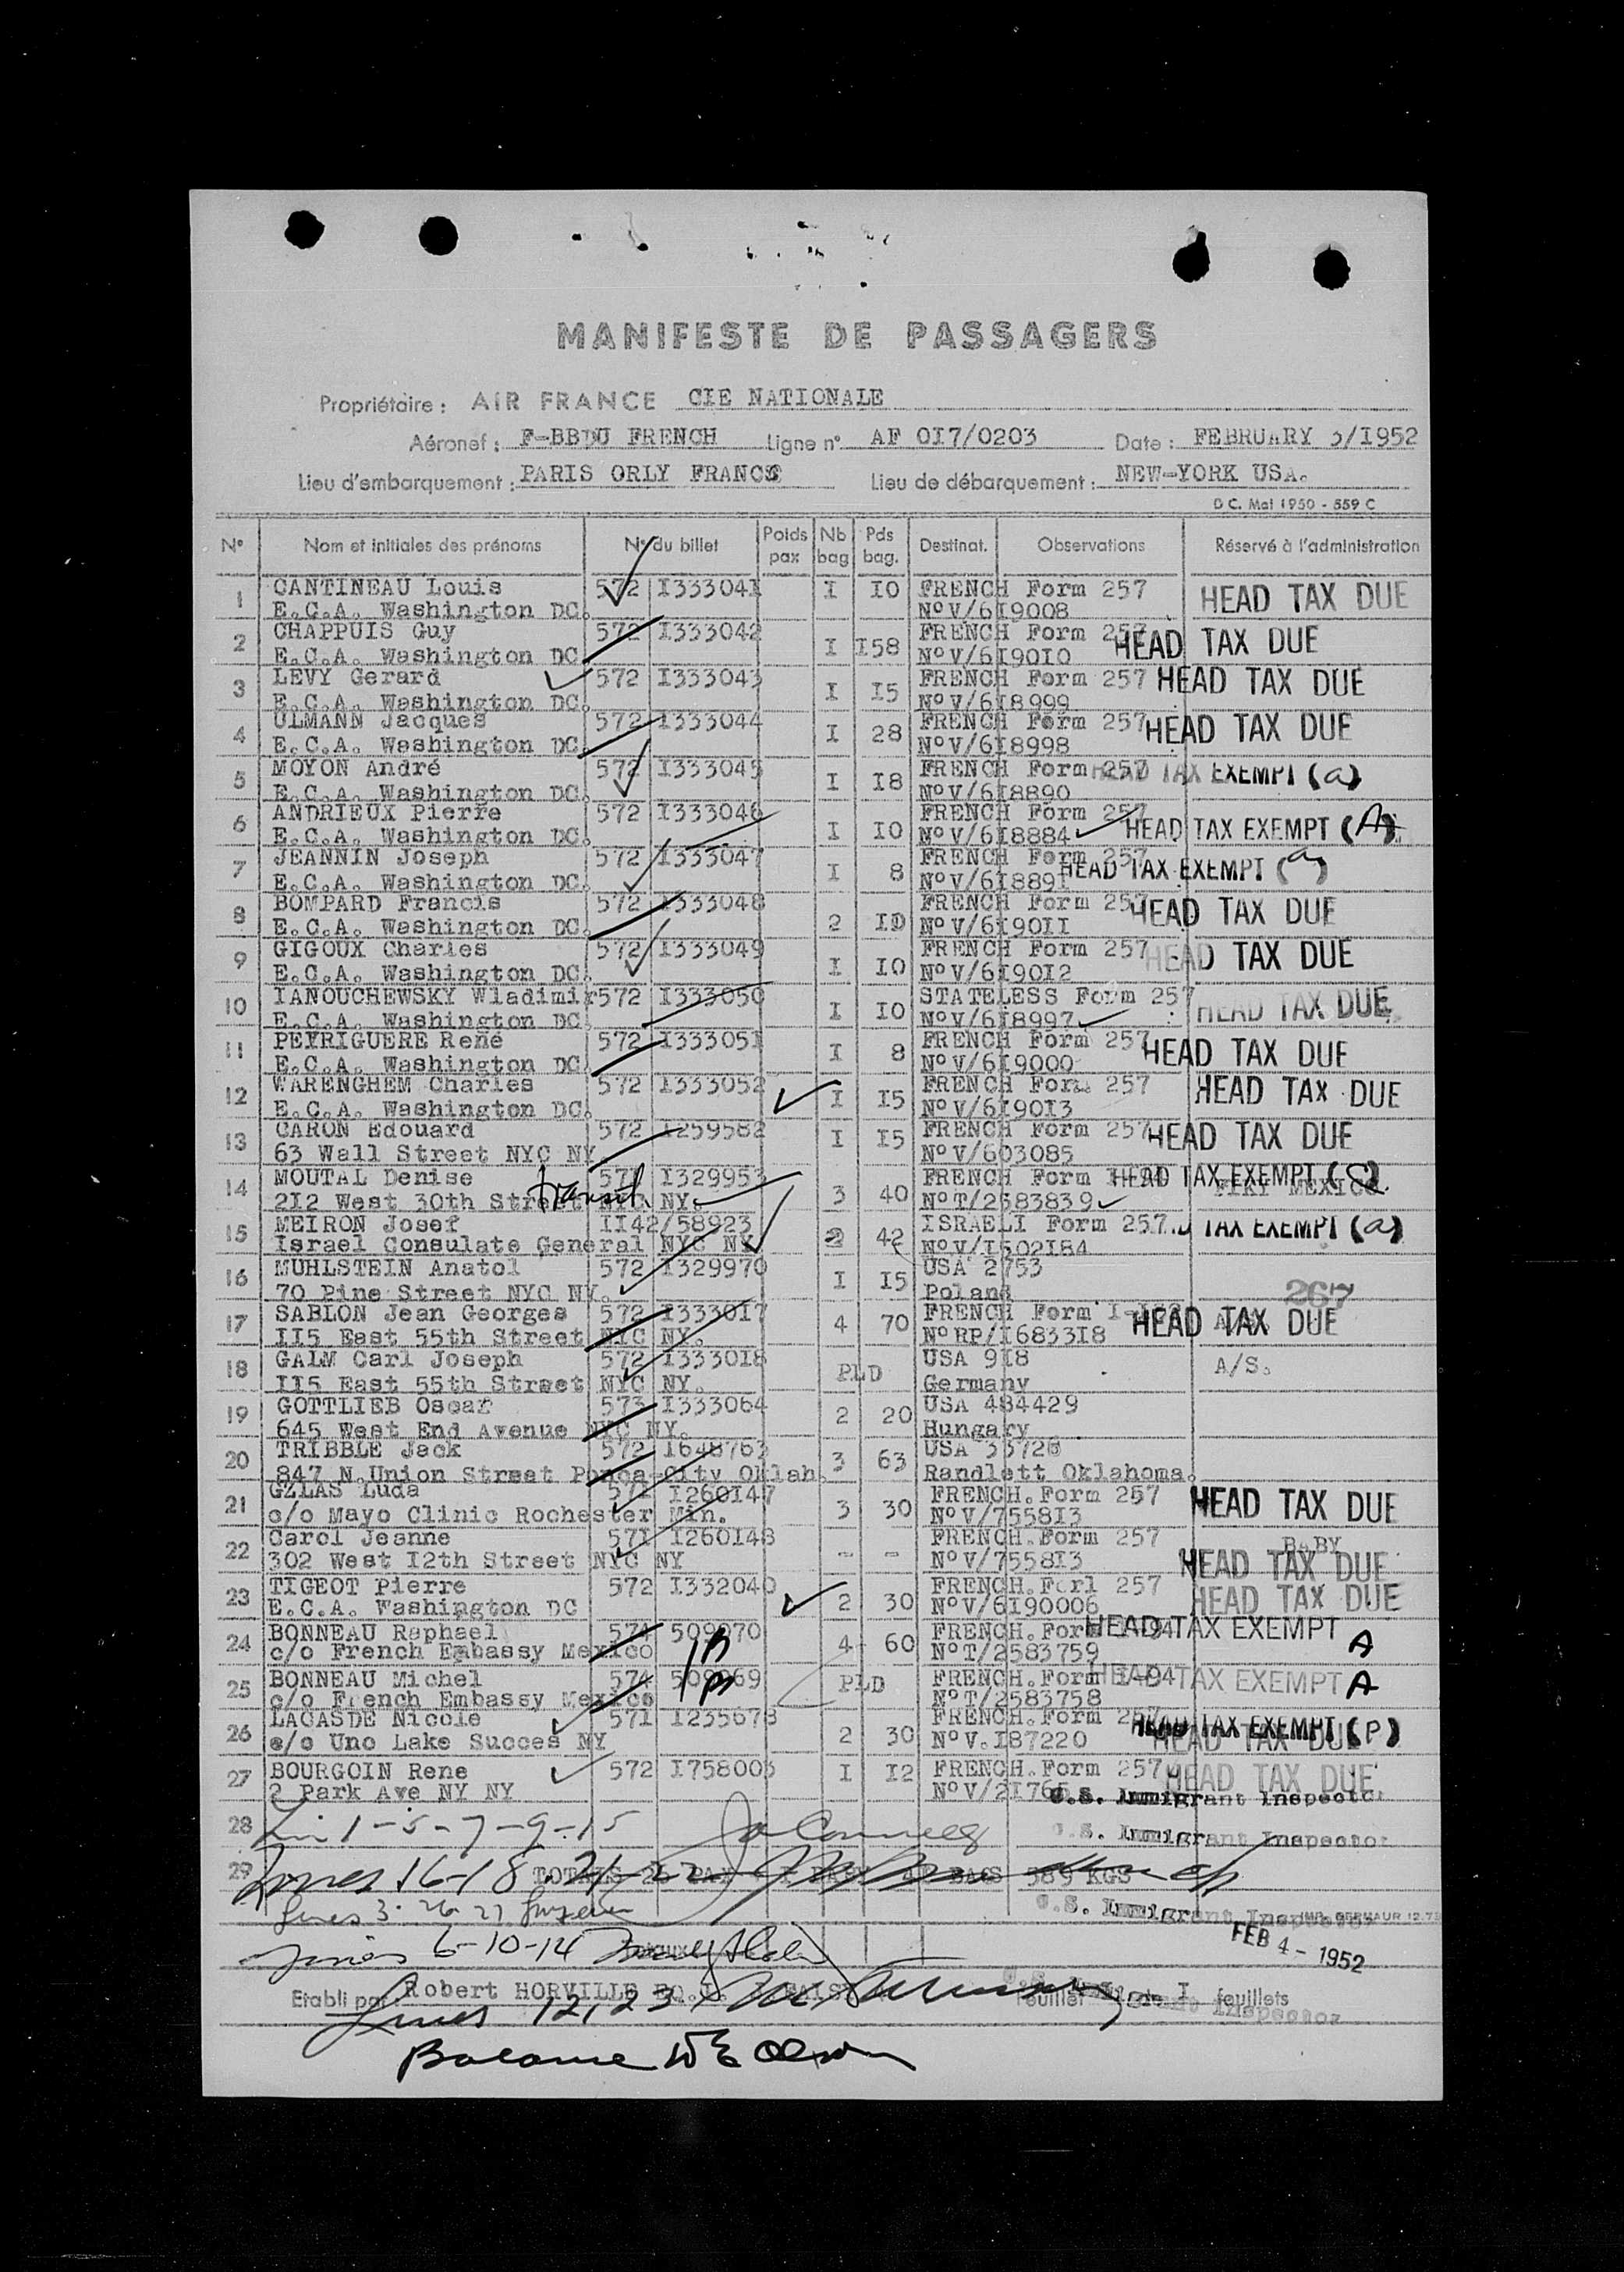 MANIFESTE DE PASSAGERS
Propriétaire : AIR FRANCE CIE NATIONALE
Aéronef : F-BBDU FRENCH Ligne n° AF 0I7/0203 Date : FEBRUARY 3/I952
Lieu d'embarquement : PARIS ORLY FRANCE Lieu de débarquement : NEW-YORK USA.
D C. Mai 1950 - 559 C
N° Nom et initiales des prénoms N° du billet Poids pax Nb bag Pds bag. Destinat. Observations Réservé à l'administration
1 CANTINEAU Louis 572 I333041 I I0 FRENCH Form 257 HEAD TAX DUE
E.C.A. Washington DC. N°V/6I9008
2 CHAPPUIS Guy 572 I333042 I I58 FRENCH Form 257 HEAD TAX DUE
E.C.A. Washington DC. N°V/6I90I0
3 LEVY Gerard 572 I333043 I I5 FRENCH Form 257 HEAD TAX DUE
E.C.A. Washington DC. N°V/6I8999
4 ULMANN Jacques 572 I333044 I 28 FRENCH Form 257 HEAD TAX DUE
E.C.A. Washington DC. N°V/6I8998
5 MOYON André 572 I333045 I I8 FRENCH Form 257 HEAD TAX EXEMPT (a)
E.C.A. Washington DC. N°V/6I8890
6 ANDRIEUX Pierre 572 I333046 I I0 FRENCH Form 257 HEAD TAX EXEMPT (A)
E.C.A. Washington DC. N°V/6I8884
7 JEANNIN Joseph 572 I333047 I 8 FRENCH Form 257 HEAD TAX EXEMPT (a)
E.C.A. Washington DC. N°V/6I889I
8 BOMPARD Francis 572 I333048 2 I0 FRENCH Form 257 HEAD TAX DUE
E.C.A. Washington DC. N°V/6I90II
9 GIGOUX Charles 572 I333049 I I0 FRENCH Form 257 HEAD TAX DUE
E.C.A. Washington DC. N°V/6I90I2
10 IANOUCHEWSKY Wladimir 572 I333050 I I0 STATELESS Form 257 HEAD TAX DUE
E.C.A. Washington DC. N°V/6I8997
11 PEYRIGUERE René 572 I33305I I 8 FRENCH Form 257 HEAD TAX DUE
E.C.A. Washington DC. N°V/6I9000
12 WARENGHEM Charles 572 I333052 I I5 FRENCH Form 257 HEAD TAX DUE
E.C.A. Washington DC. N°V/6I90I3
13 CARON Edouard 572 I259582 I I5 FRENCH Form 257 HEAD TAX DUE
63 Wall Street NYC NY. N°V/603085
14 MOUTAL Denise 571 I329953 3 40 FRENCH Form HEAD TAX EXEMPT
2I2 West 30th Street NYC NY. transit N°T/2583839 MEXICO
15 MEIRON Josef II42/58923 2 42 ISRAELI Form 257 TAX EXEMPT (a)
Israel Consulate General NYC NY N°V/I502I84
16 MUHLSTEIN Anatol 572 I329970 I I5 USA 2753
70 Pine Street NYC NY. Poland 267
17 SABLON Jean Georges 572 I3330I7 4 70 FRENCH Form HEAD TAX DUE
II5 East 55th Street NYC NY. N°RP/I6833I8
18 GALM Carl Joseph 572 I3330I8 PLD USA 9I8 A/S.
II5 East 55th Street NYC NY. Germany
19 GOTTLIEB Oscar 573 I333064 2 20 USA 484429
645 West End Avenue NYC NY. Hungary
20 TRIBBLE Jack 572 I648763 3 63 USA 33726
847 N.Union Street Ponca-City Oklah. Randlett Oklahoma.
21 GZLAS Luda 571 I260I47 3 30 FRENCH.Form 257 HEAD TAX DUE
c/o Mayo Clinic Rochester Min. N°V/7558I3
22 Carol Jeanne 571 I260I48 - - FRENCH.Form 257 BABY
302 West I2th Street NYC NY N°V/7558I3 HEAD TAX DUE
23 TIGEOT Pierre 572 I332040 2 30 FRENCH.Forl 257 HEAD TAX DUE
E.C.A. Washington DC N°V/6I90006
24 BONNEAU Raphael 574 509970 4 60 FRENCH.Form HEAD TAX EXEMPT A
c/o French Embassy Mexico N°T/2583759
25 BONNEAU Michel 574 509969 PLD FRENCH.Form HEAD TAX EXEMPT A
c/o French Embassy Mexico N°T/2583758
26 LACASDE Nicole 571 I235678 2 30 FRENCH.Form 257 HEAD TAX EXEMPT (P)
c/o Uno Lake Succes NY N°V.I87220 HEAD TAX DUE
27 BOURGOIN Rene 572 I758003 I I2 FRENCH.Form 257 HEAD TAX DUE
2 Park Ave NY NY N°V/2I765 U.S. Immigrant Inspector
28 1-5-7-9-15 U.S. Immigrant Inspector
29 Lines 16-18 TOTALS 26 PAX BAGS 589 KGS
Lines 3-26-27 U.S. Immigrant Inspector
Lines 6-10-14 FEB 4 - 1952
Etabli par : Robert HORVILLE feuillet I de I feuillets
Lines 12,23 Inspector
Balance